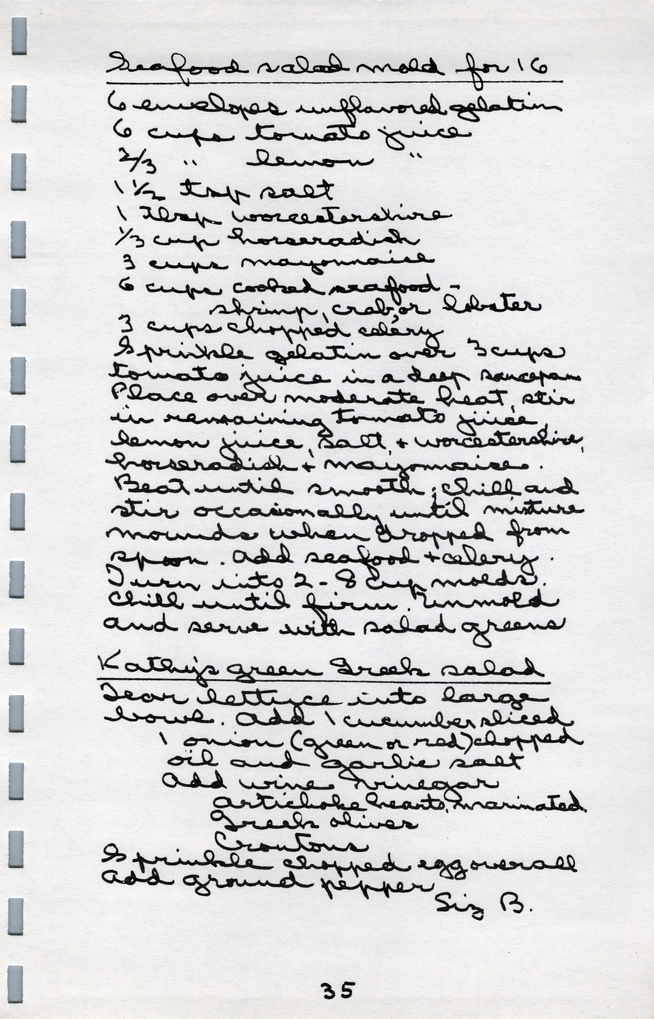 Seafood salad mold for 16
6 envelopes unflavored gelatin
6 cups tomato juice
2/3 " lemon "
1 1/2 tsp salt
1 tbsp worcestershire
1/3 cup horseradish
3 cups mayonnaise
6 cups cooked seafood -
shrimp, crab, or lobster
3 cups chopped celery
Sprinkle gelatin over 3 cups
tomato juice in a deep saucepan
Place over moderate heat, stir
in remaining tomato juice,
lemon juice, salt, + worcestershire,
horseradish + mayonnaise.
Beat until smooth; chill and
stir occasionally until mixture
mounds when dropped from
spoon. Add seafood + celery.
Turn into 2 - 8 cup molds.
Chill until firm. Unmold
and serve with salad greens
Kathy's green Greek salad
Tear lettuce into large
bowl. Add 1 cucumber sliced
1 onion (green or red) chopped
oil and garlic salt
Add wine vinegar
artichoke hearts, marinated
Greek olives
Croutons
Sprinkle chopped egg overall
add ground pepper
Siz B.
35